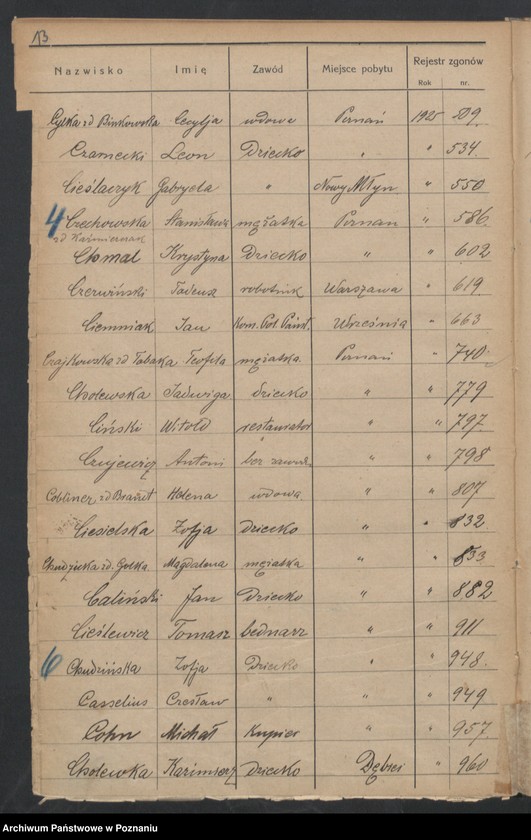 13
Nazwisko Imię Zawód Miejsce pobytu Rejestr zgonów
Rok nr.
Cylka zd Binkowska Cecylja wdowa Poznań 1925 209.
Czarnecki Leon Dziecko " " 534.
Cieślaczyk Gabryela " Nowy Młyn " 550
4 Czechowska Stanisława mężatka Poznań " 586.
zd Kaźmierczak
Chmal Krystyna Dziecko " " 602
Czerwiński Tadeusz robotnik Warszawa " 619.
Ciemniak Jan Kom. Pol. Państ. Września " 663
Czajkowska zd Tabaka Teofila mężatka Poznań " 740.
Cholewska Jadwiga dziecko " " 779
Ciński Witold restaurator " " 797.
Czujewicz Antoni bez zawodu " " 798
Cobliner zd Helena wdowa " " 807
Ciesielska Zofja Dziecko " " 832
zd. Golka Magdalena mężatka " " 853
Caliński Jan Dziecko " " 882
Cieślewicz Tomasz bednarz " " 911
6 Chudzińska Zofja Dziecko " " 948.
Casselius Czesław " " " 949
Cohn Michał Kupiec " " 957
Cholewka Kazimierz dziecko Dębiec " 960
Archiwum Państwowe w Poznaniu